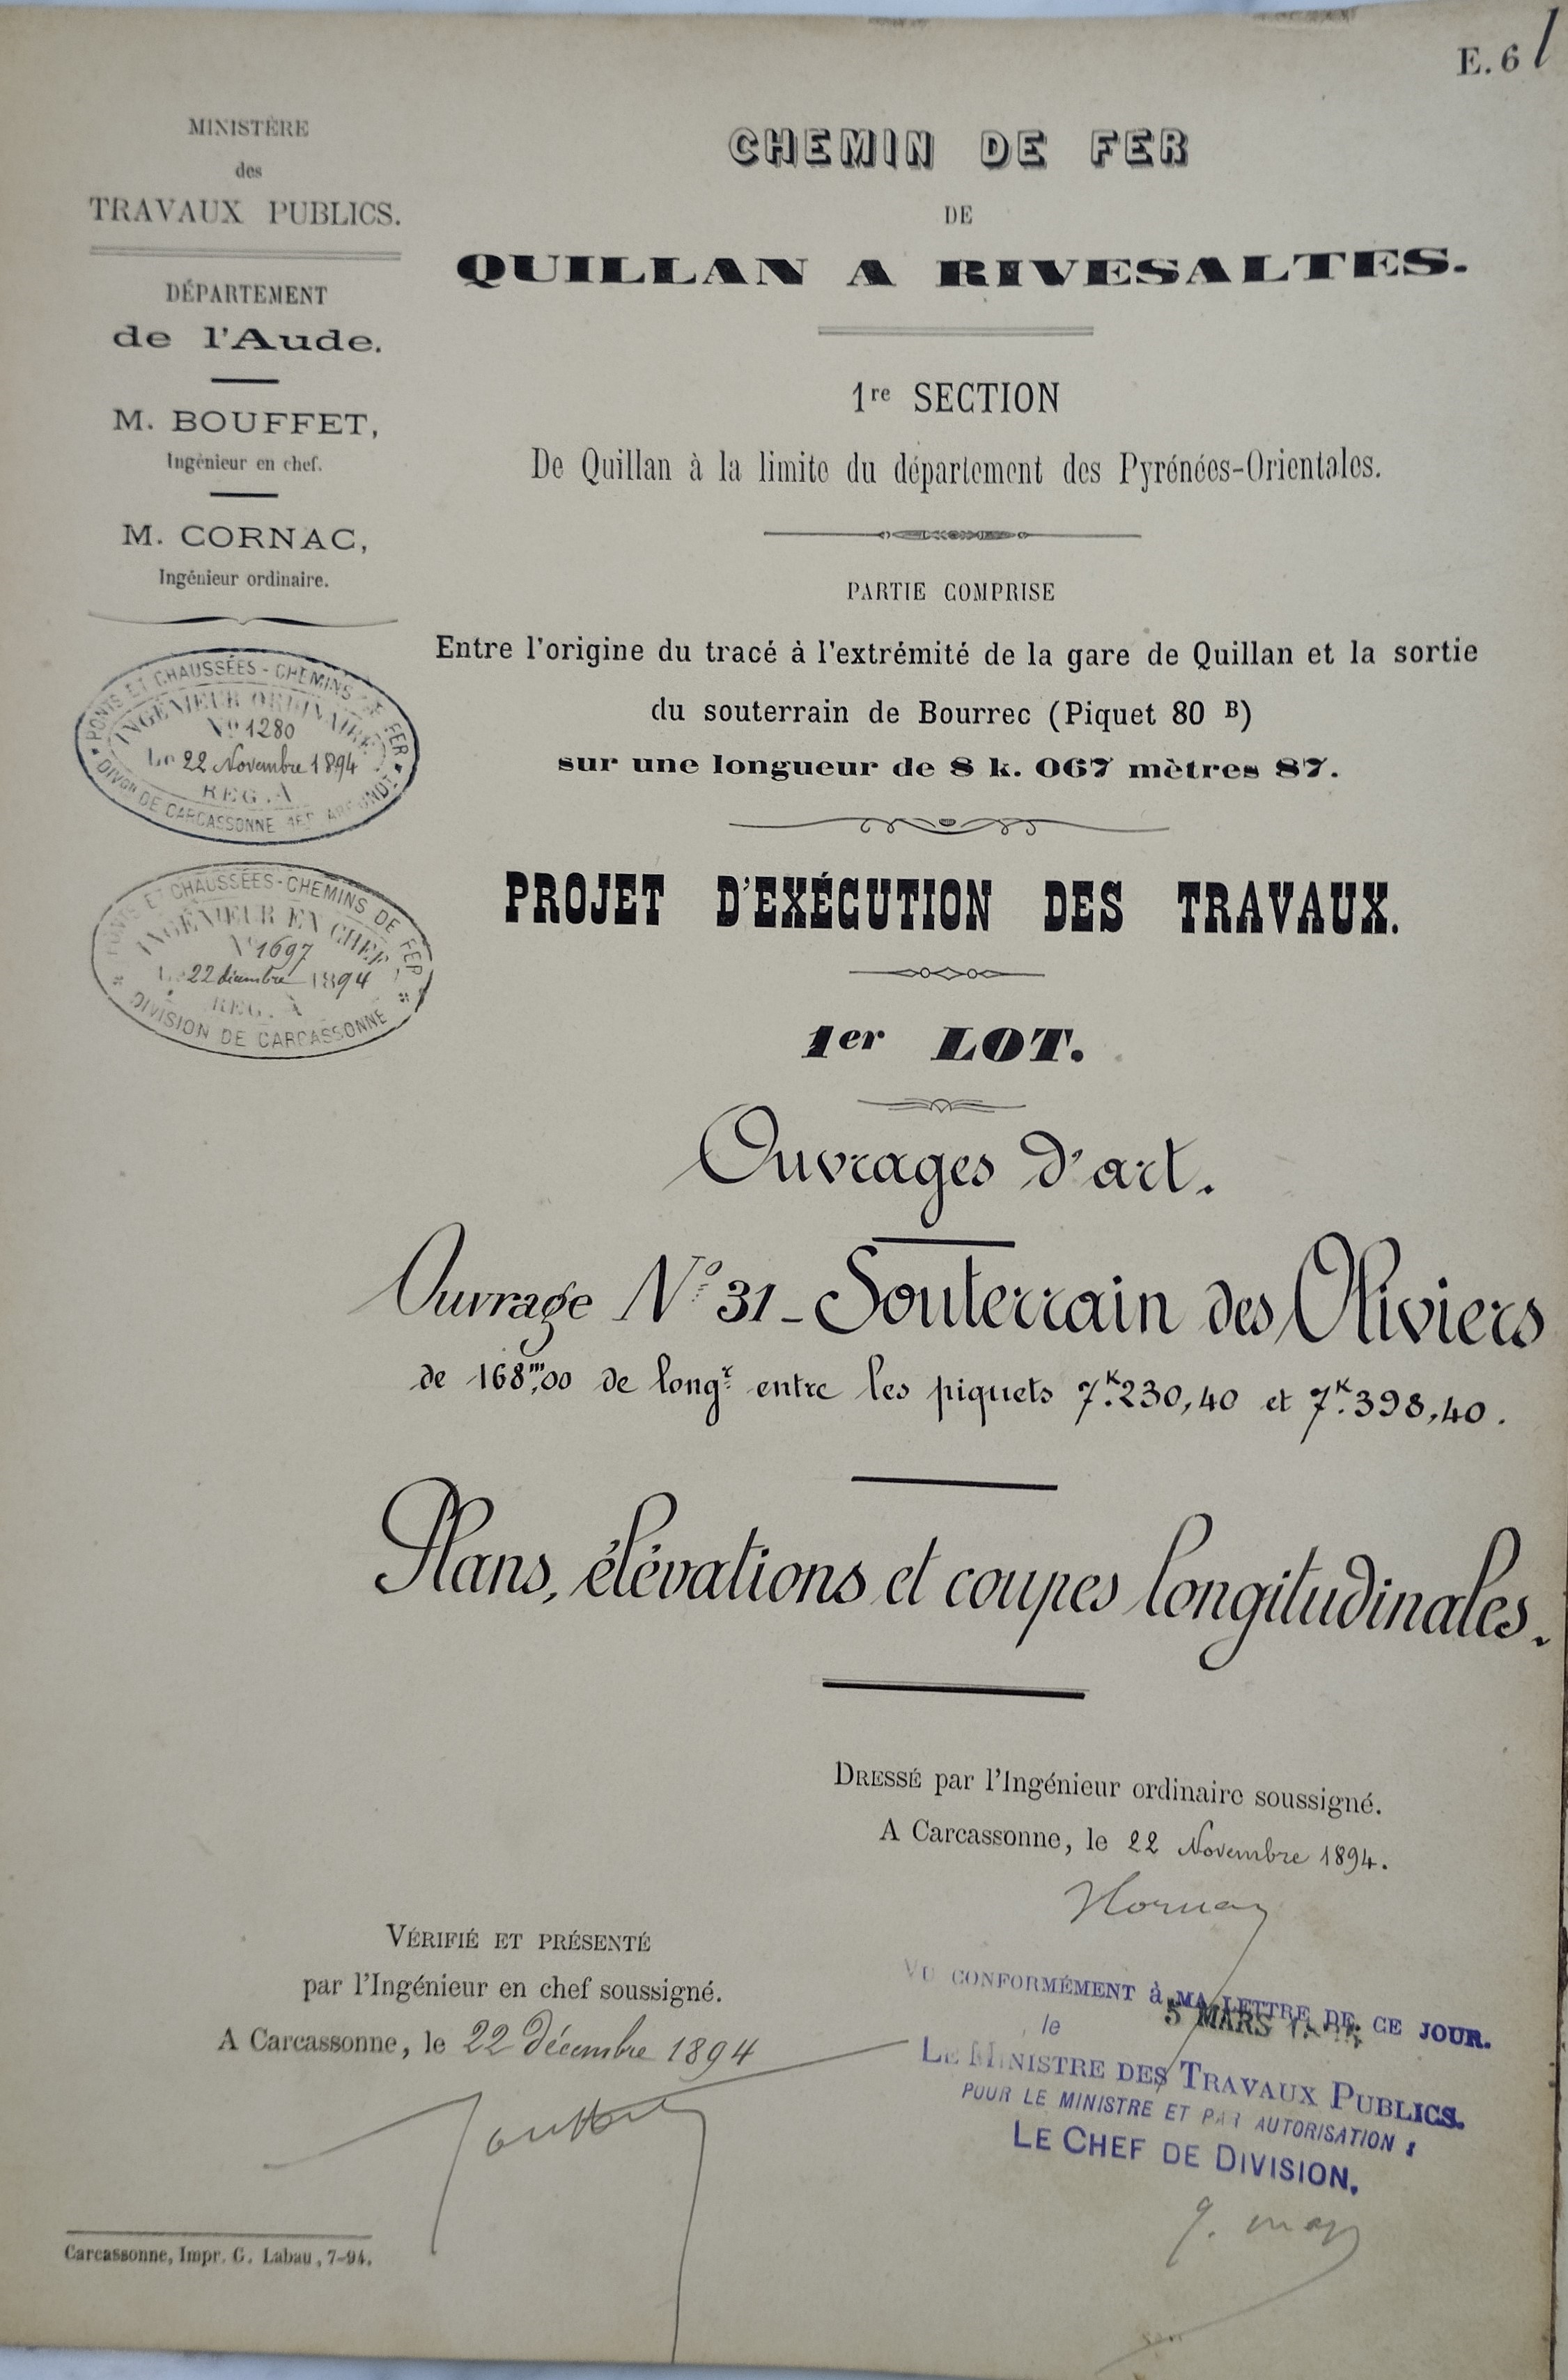 E. 6
MINISTÈRE
des
TRAVAUX PUBLICS.
DÉPARTEMENT
de l'Aude.
M. BOUFFET,
Ingénieur en chef.
M. CORNAC,
Ingénieur ordinaire.
PONTS ET CHAUSSÉES - CHEMINS DE FER
INGÉNIEUR ORDINAIRE
No 1280
Le 22 Novembre 1894
REG. A
DIVon DE CARCASSONNE
PONTS ET CHAUSSÉES - CHEMINS DE FER
INGÉNIEUR EN CHEF
No 1697
Le 22 décembre 1894
REG. A
DIVISION DE CARCASSONNE
CHEMIN DE FER
DE
QUILLAN A RIVESALTES.
1re SECTION
De Quillan à la limite du département des Pyrénées-Orientales.
PARTIE COMPRISE
Entre l'origine du tracé à l'extrémité de la gare de Quillan et la sortie
du souterrain de Bourrec (Piquet 80 B)
sur une longueur de 8 k. 067 mètres 87.
PROJET D'EXÉCUTION DES TRAVAUX.
1er LOT.
Ouvrages d'art.
Ouvrage No 31 - Souterrain des Oliviers
de 168m,00 de longr entre les piquets 7K.230,40 et 7K.398,40.
Plans, élévations et coupes longitudinales.
DRESSÉ par l'Ingénieur ordinaire soussigné.
A Carcassonne, le 22 Novembre 1894.
VÉRIFIÉ ET PRÉSENTÉ
par l'Ingénieur en chef soussigné.
A Carcassonne, le 22 décembre 1894
VU CONFORMÉMENT à MA LETTRE DE CE JOUR.
le 5 MARS
LE MINISTRE DES TRAVAUX PUBLICS.
POUR LE MINISTRE ET PAR AUTORISATION :
LE CHEF DE DIVISION,
Carcassonne, Impr. G. Labau, 7-94.